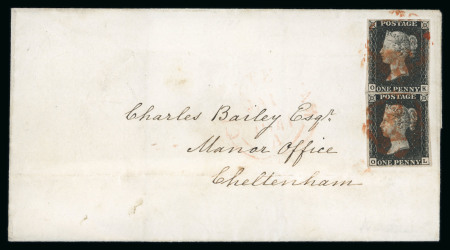 POSTAGE
O K
ONE PENNY
POSTAGE
O L
ONE PENNY
Charles Bailey Esqr.
Manor Office
Cheltenham